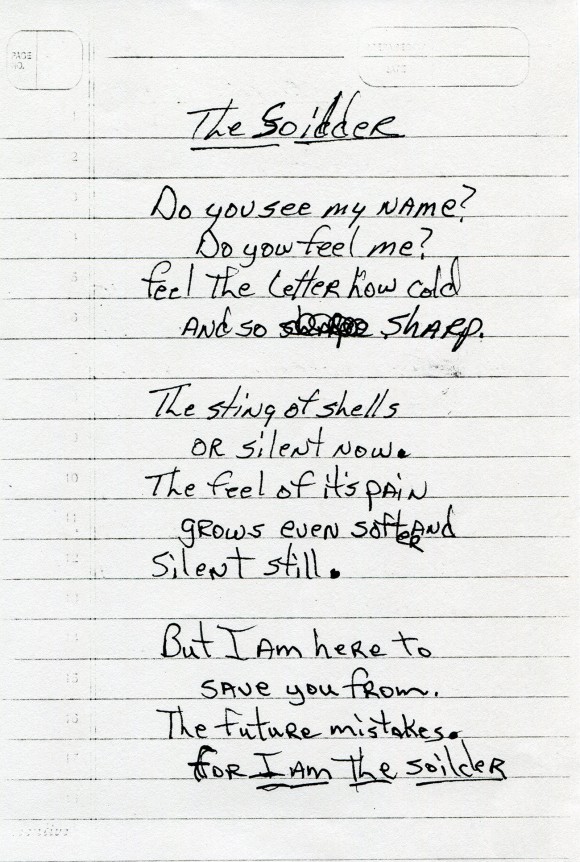 PAGE
NO.
DATE
The Soidder
Do you see my NAme?
Do you feel me?
feel The LetteR how cold
ANd so ShARp.
The sting of shells
OR sileNt Now.
The feel of it's pAiN
gRows eveN softeR ANd
SileNt still.
But I Am heRe to
sAve you from.
The futuRe mistakes.
foR I AM The soildeR
1
2
3
4
5
6
7
9
10
11
12
14
15
16
17